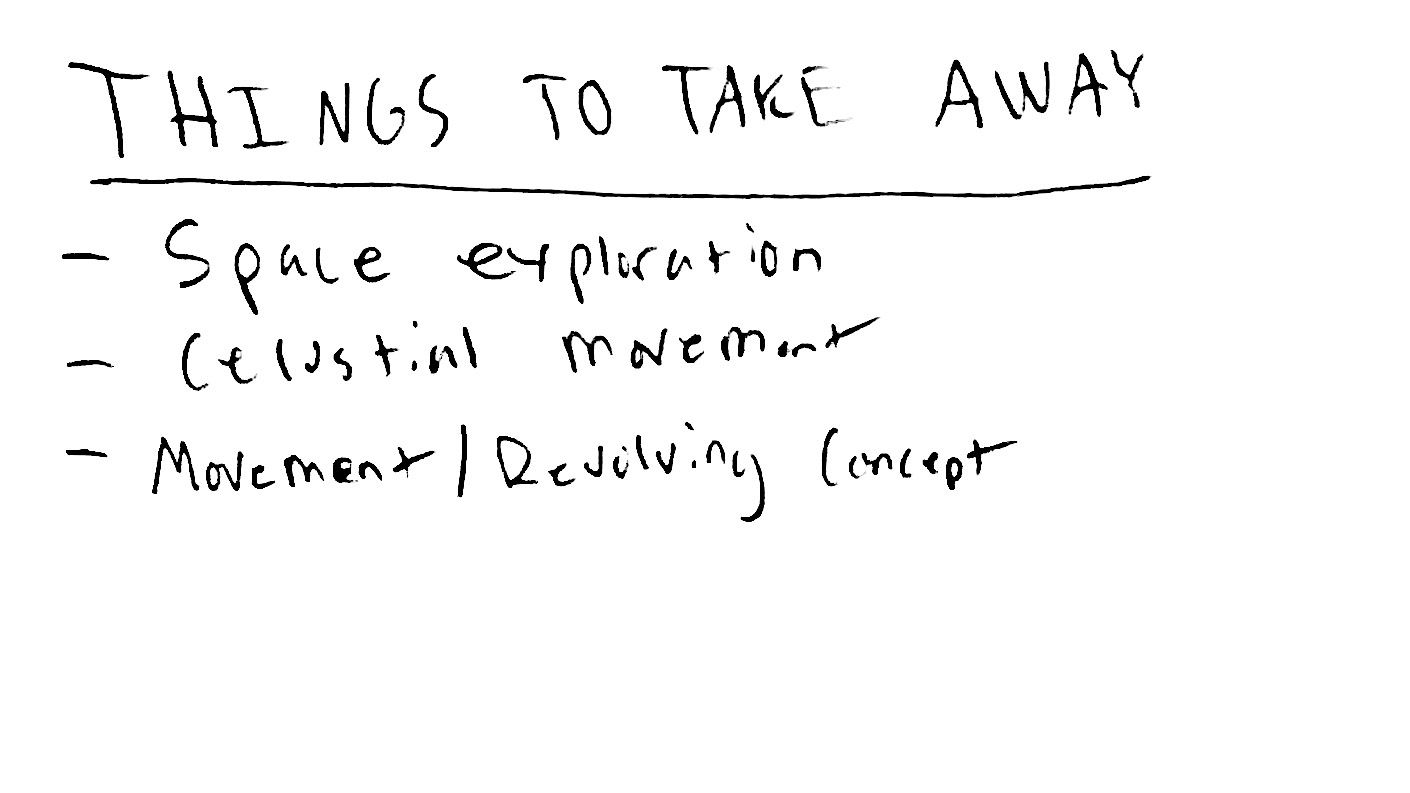 THINGS TO TAKE AWAY
- Space exploration
- Celestial movement
- Movement / Revolving Concept